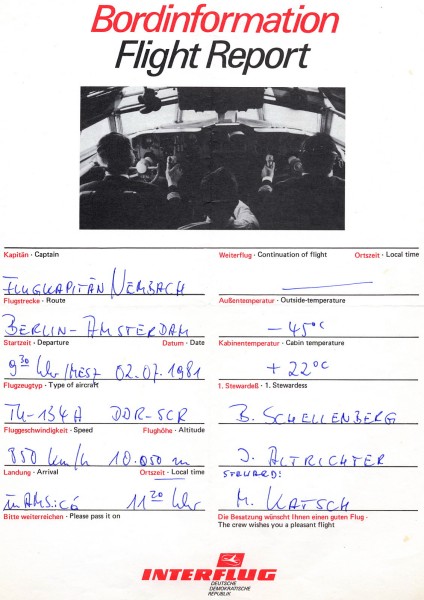 Bordinformation
Flight Report
Kapitän · Captain
Weiterflug · Continuation of flight Ortszeit · Local time
FLUGKAPITÄN NEMBACH
Flugstrecke · Route
Außentemperatur · Outside-temperature
BERLIN-AMSTERDAM
- 45°C
Startzeit · Departure Datum · Date
Kabinentemperatur · Cabin temperature
9 30 Uhr/MESZ 02.07.1981
+ 22°C
Flugzeugtyp · Type of aircraft
1. Stewardeß · 1. Stewardess
TU-134A DDR-SCR
B. SCHELLENBERG
Fluggeschwindigkeit · Speed Flughöhe · Altitude
850 km/h 10.050 m
J. ALTRICHTER
Landung · Arrival Ortszeit · Local time
STEWARD:
in 11 20 Uhr
M. KATSCH
Bitte weiterreichen · Please pass it on
Die Besatzung wünscht Ihnen einen guten Flug ·
The crew wishes you a pleasant flight
INTERFLUG
DEUTSCHE
DEMOKRATISCHE
REPUBLIK